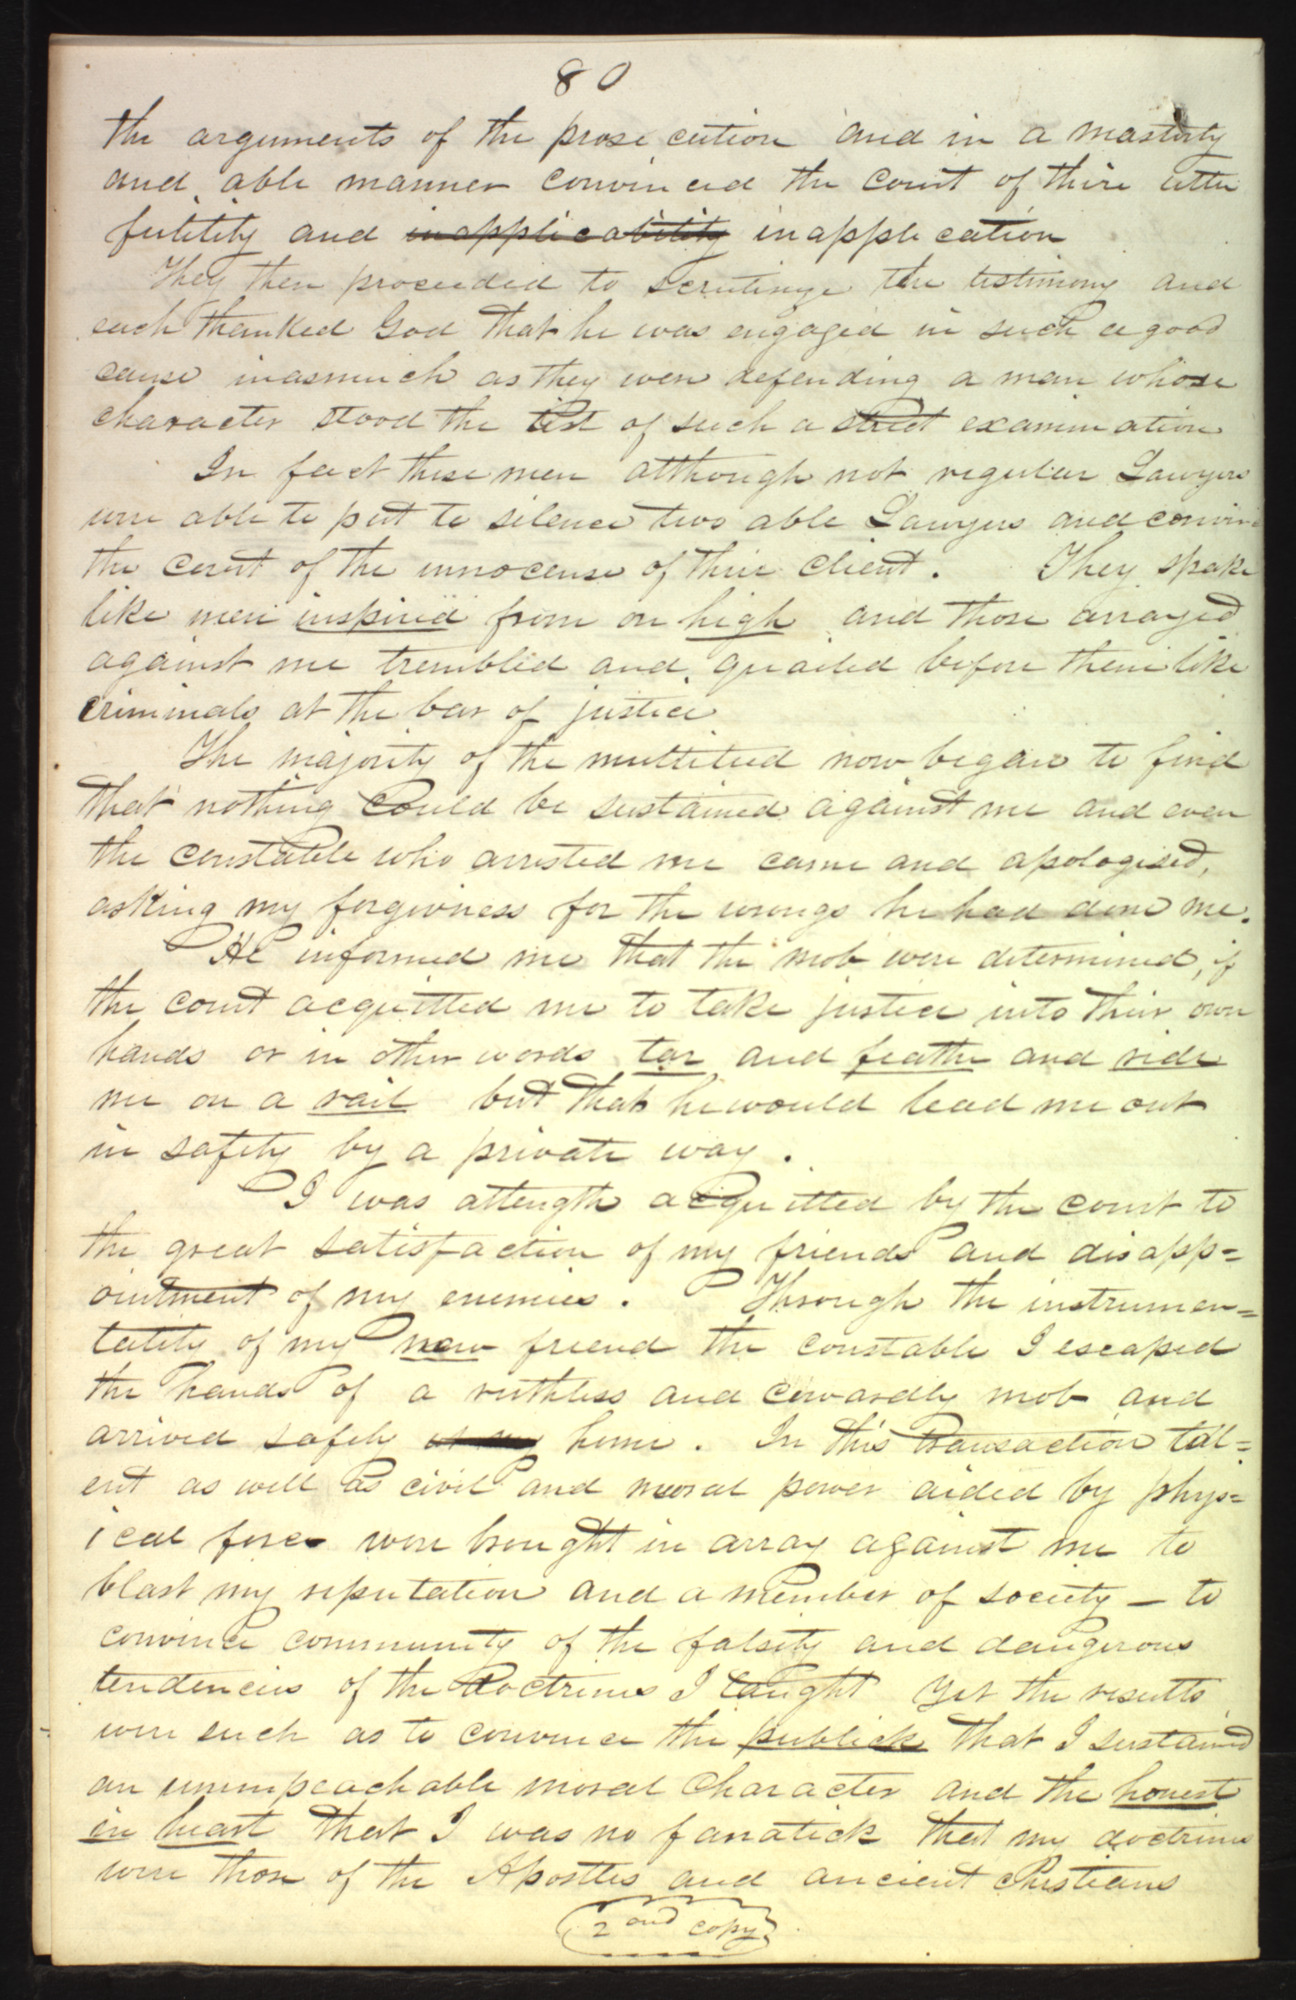 80
the arguments of the prosecution and in a masterly
and able manner convinced the court of thire utter
futility and inapplicability inapplication
They then proceeded to scrutinize the testimony and
each thanked God that he was engaged in such a good
cause inasmuch as they were defending a man whose
character stood the test of such a strict examination
In fact these men although not regular Lawyers
were able to put to silence two able Lawyers and convince
the court of the innocense of thire client. They spake
like men inspired from on high and those arrayed
against me trembled and quailed before them like
criminals at the bar of justice
The majority of the multitued now began to find
that nothing could be sustained against me and even
the constable who arrested me came and apologised,
asking my forgivness for the wrongs he had done me.
He informed me that the mob were determined, if
the court acquitted me to take justice into their own
hands or in other words tar and feathe and ride
me on a rail but that he would lead me out
in safety by a private way.
I was attength acquitted by the court to
the great satisfaction of my friends and disapp=
ointment of my enemies. Through the instrumen=
tality of my new friend the constable I escaped
the hands of a ruthless and cowardly mob and
arrived safely at my home. In this transaction tal=
ent as well as civil and moral power aided by phys=
ical force were brought in array against me to
blast my reputation and a member of society — to
convince community of the falsity and dangerous
tendencies of the doctrines I taught Yet the results
were such as to convince the publick that I sustained
an unimpeachable moral character and the honest
in heart that I was no fanatick that my doctrines
were those of the Apostles and ancient Chistians
2 and copy